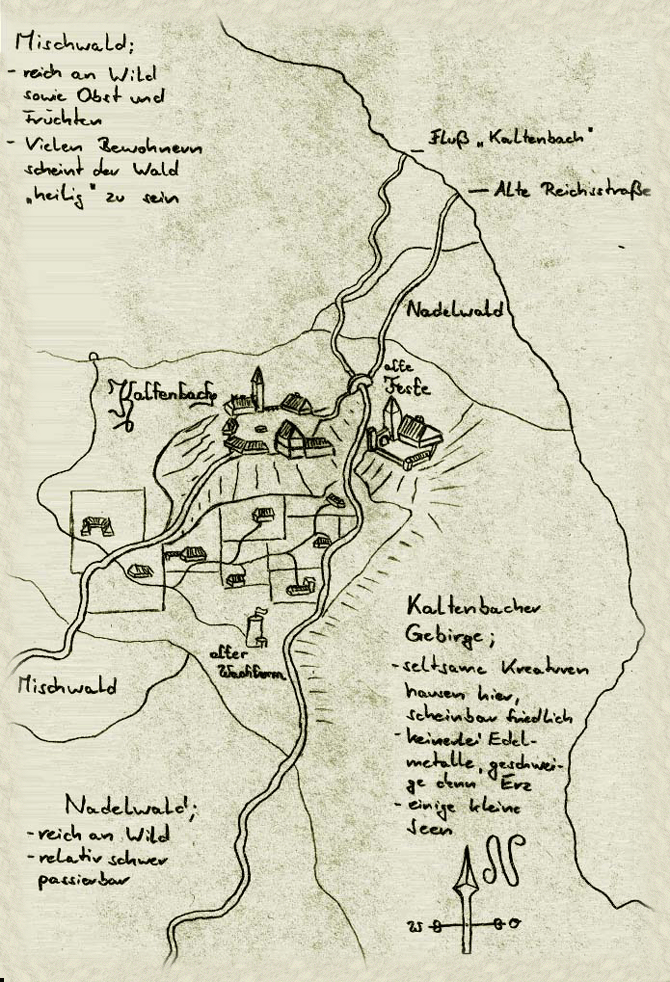 Mischwald;
- reich an Wild
sowie Obst und
Früchten
- Vielen Bewohnern
scheint der Wald
„heilig" zu sein
Fluß „Kaltenbach"
Alte Reichsstraße
Nadelwald
Kaltenbach
alte
Feste
alter
Wachturm
Mischwald
Kaltenbacher
Gebirge;
- seltsame Kreaturen
hausen hier,
scheinbar friedlich
- keinerlei Edel-
metalle, geschwei-
ge denn Erz
- einige kleine
Seen
Nadelwald;
- reich an Wild
- relativ schwer
passierbar
N
W
O